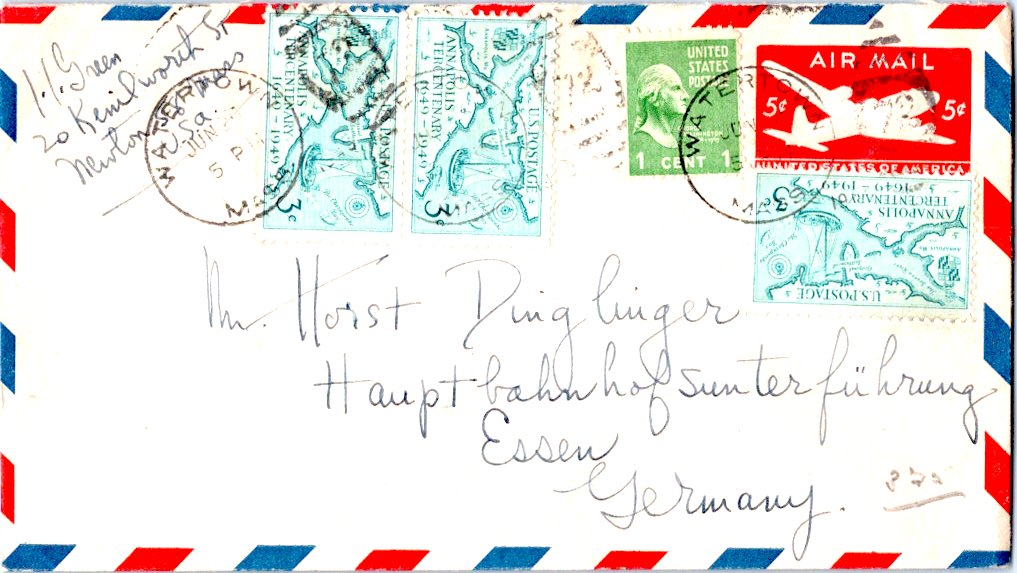 Green
20 Kenilworth St
Newton Mass
USa.
WATERTOWN
JUN
5 P
MASS
ANNAPOLIS
TERCENTENARY
1649 - 1949
U.S. POSTAGE
3c
ANNAPOLIS
TERCENTENARY
1649 - 1949
U.S. POSTAGE
3c
UNITED
STATES
POSTAGE
1 CENT 1
WATERTOWN
JUN
5
MASS
AIR MAIL
5¢ 5¢
UNITED STATES OF AMERICA
ANNAPOLIS
TERCENTENARY
1649 - 1949
3c
U.S. POSTAGE
Mr. Horst Dinglinger
Hauptbahnhofsunterführung
Essen
Germany.